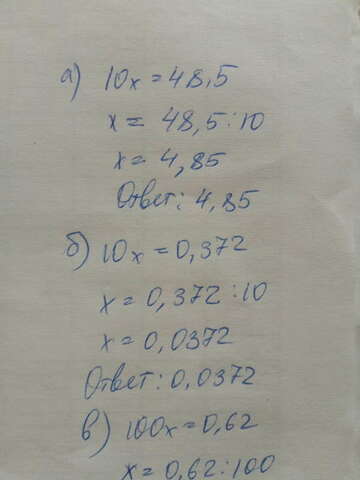 а) 10x = 48,5
x = 48,5 : 10
x = 4,85
Ответ: 4,85
б) 10x = 0,372
x = 0,372 : 10
x = 0,0372
Ответ: 0,0372
в) 100x = 0,62
x = 0,62 : 100